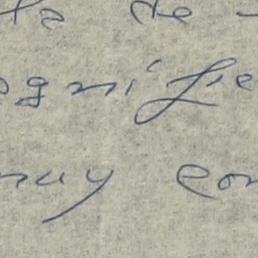 ta de
egnifie
muy con